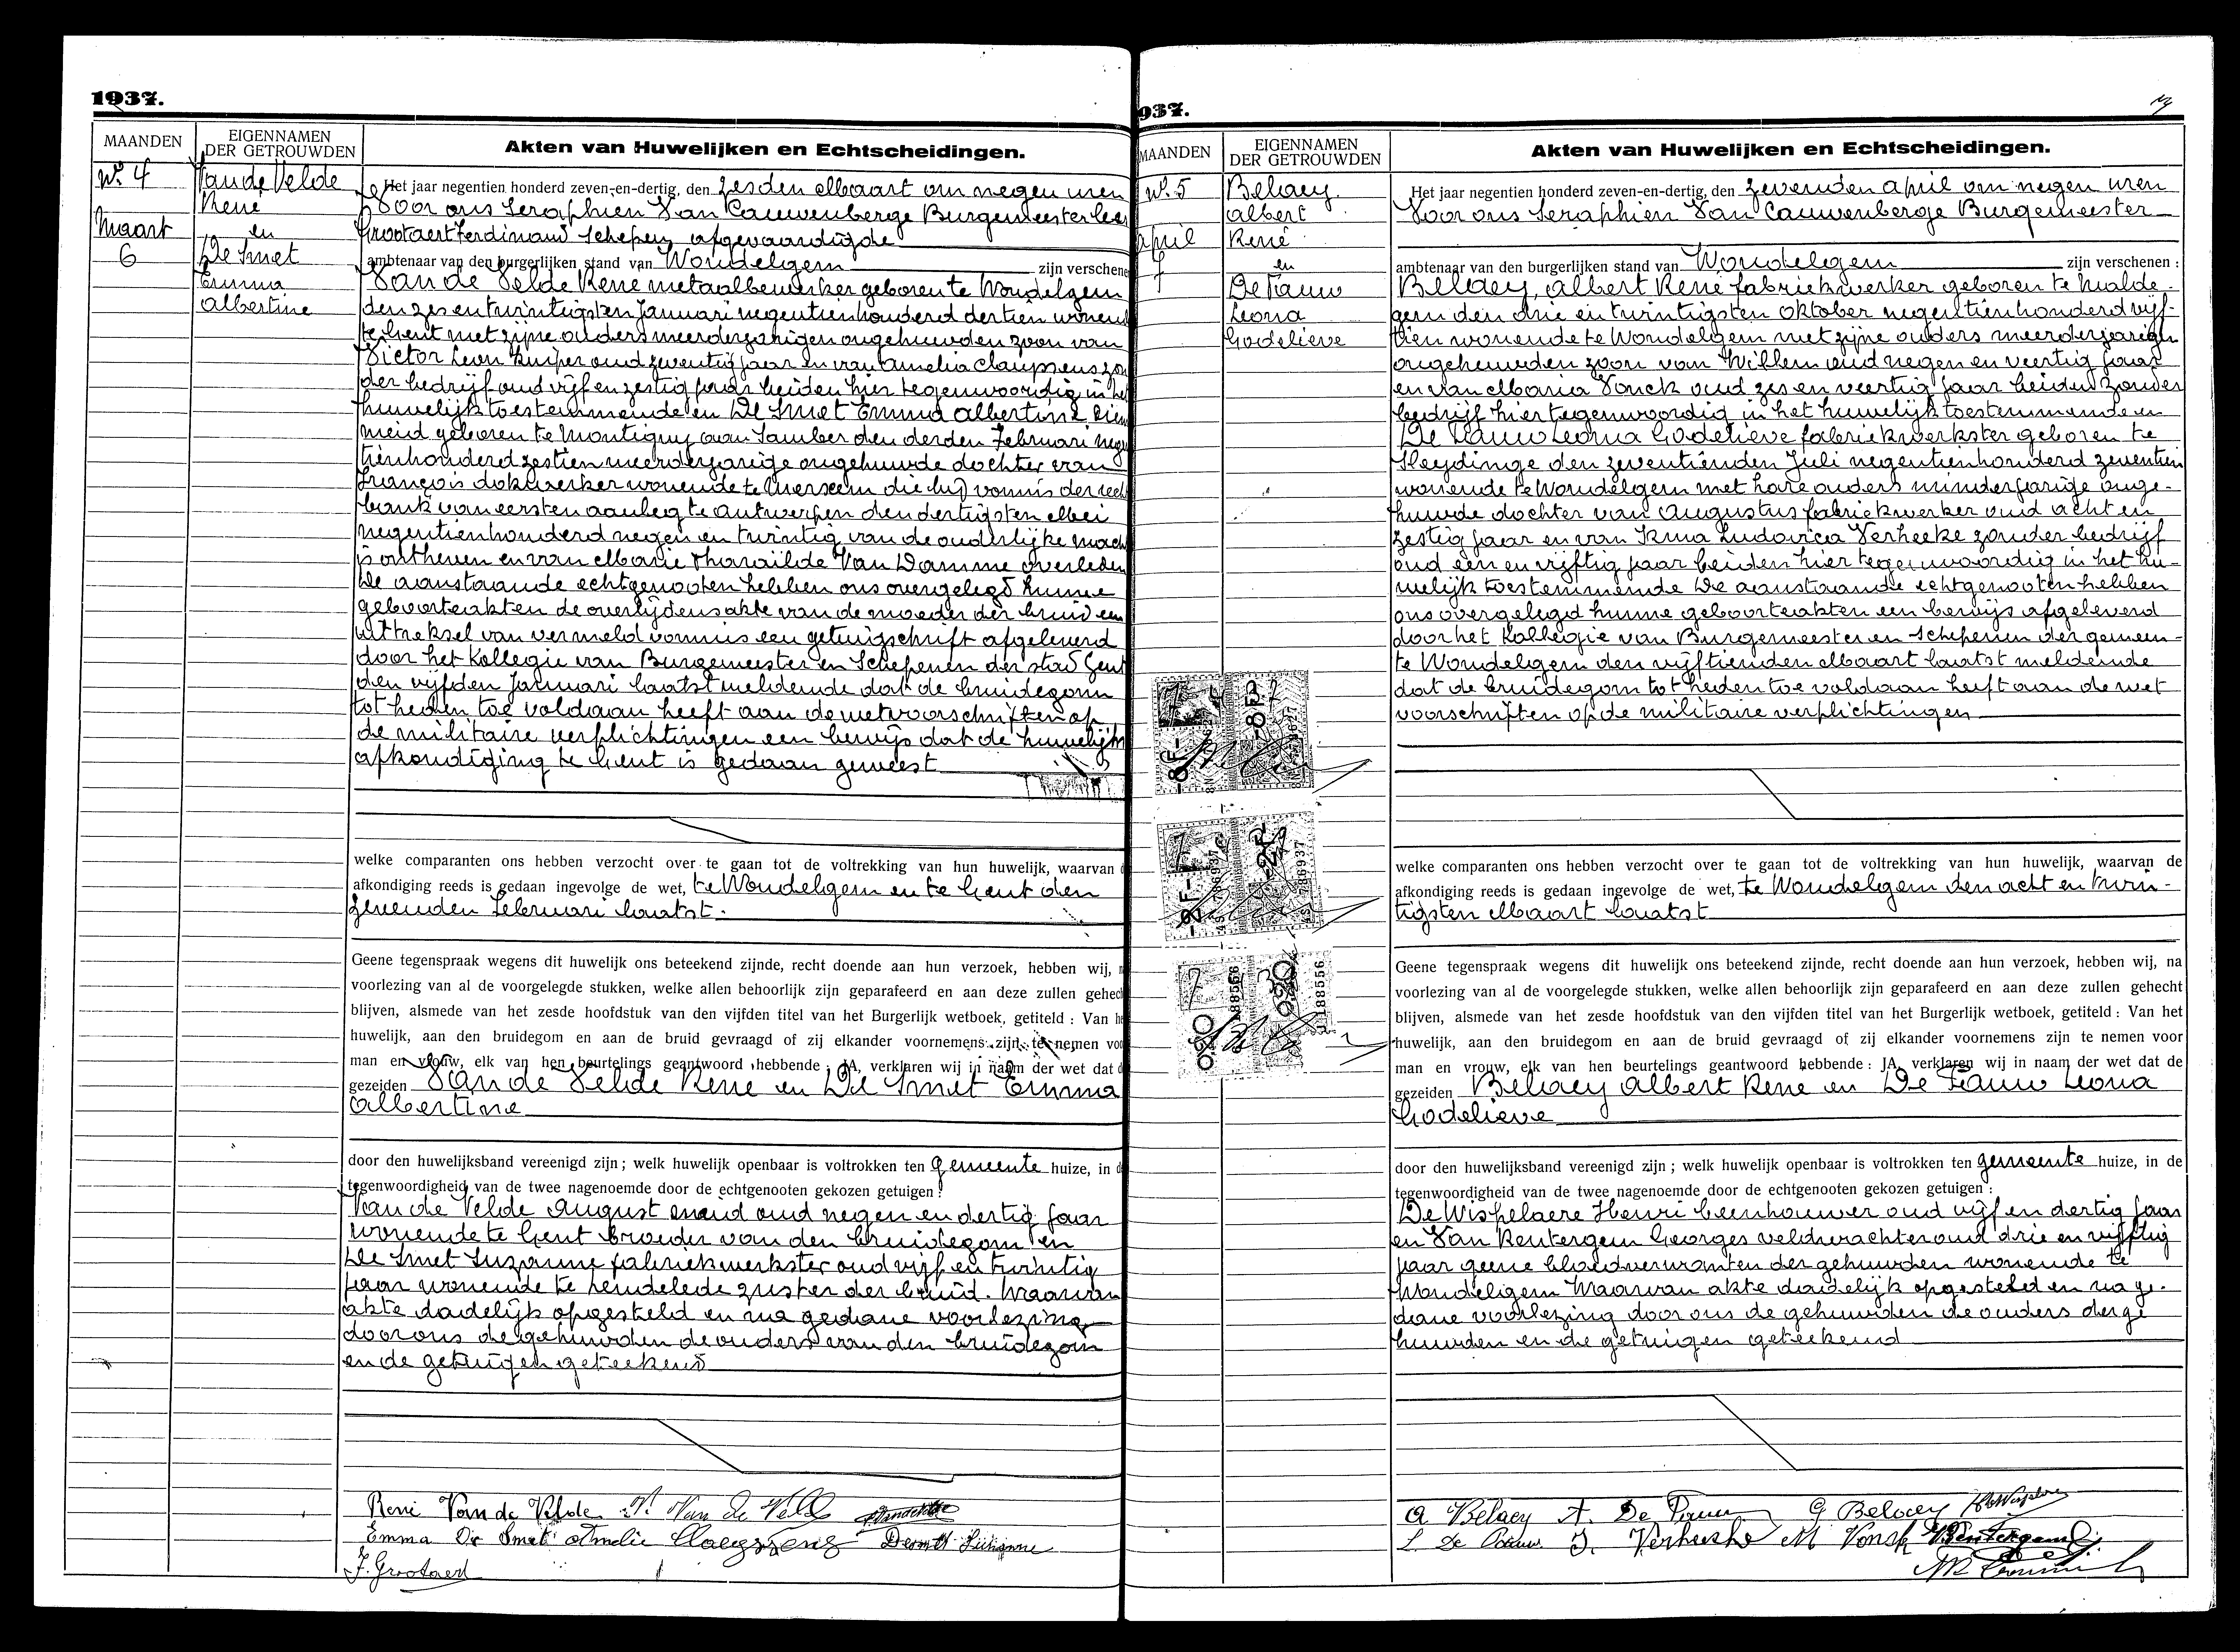 1937.
MAANDEN
EIGENNAMEN DER GETROUWDEN
Akten van Huwelijken en Echtscheidingen.
No. 4
Maart
6
Van de Velde
René
en
De Smet
Emma
Albertine
Het jaar negentien honderd zeven-en-dertig, den zesden Maart om negen uren
Voor ons Seraphien Van Cauwenberge Burgemeester
Grootaert Ferdinand Schepen afgevaardigde
ambtenaar van den burgerlijken stand van Wondelgem zijn verschene
Van de Velde René metaalbewerker geboren te Wondelgem
den zes en twintigsten Januari negentienhonderd dertien wonend
te Gent met zijne ouders meerderjarigen ongehuwden zoon van
Victor Leon kuiper oud zeventig jaar en van Amelia Claeyssens zon
der bedrijf oud vijf en zestig jaar beiden hier tegenwoordig in het
huwelijk toestemmende en De Smet Emma Albertine dien
meid geboren te Montigny aan Samber den derden Februari nege
tienhonderd zestien meerderjarige ongehuwde dochter van
François dokwerker wonende te Merxem die bij vonnis der rech
bank van eersten aanleg te Antwerpen den dertigsten Mei
negentienhonderd negen en twintig van de ouderlijke mach
is ontheven en van Marie Tharaïlde Van Damme overleden
De aanstaande echtgenooten hebben ons overgelegd hunne
geboorteakten de overlijdensakte van de moeder der bruid een
uittreksel van vermeld vonnis een getuigschrift afgeleverd
door het Kollegie van Burgemeester en Schepenen der stad Gent
den vijfden Januari laatst meldende dat de bruidegom
tot heden toe voldaan heeft aan de wetvoorschriften op
de militaire verplichtingen een bewijs dat de huwelijks
afkondiging te Gent is gedaan geweest
welke comparanten ons hebben verzocht over te gaan tot de voltrekking van hun huwelijk, waarvan d
afkondiging reeds is gedaan ingevolge de wet, te Wondelgem en te Gent den
zevenden Februari laatst.
Geene tegenspraak wegens dit huwelijk ons beteekend zijnde, recht doende aan hun verzoek, hebben wij, n
voorlezing van al de voorgelegde stukken, welke allen behoorlijk zijn geparafeerd en aan deze zullen gehech
blijven, alsmede van het zesde hoofdstuk van den vijfden titel van het Burgerlijk wetboek, getiteld : Van he
huwelijk, aan den bruidegom en aan de bruid gevraagd of zij elkander voornemens zijn te nemen voo
man en vrouw, elk van hen beurtelings geantwoord hebbende : JA, verklaren wij in naam der wet dat d
gezeiden Van de Velde René en De Smet Emma
Albertine
door den huwelijksband vereenigd zijn ; welk huwelijk openbaar is voltrokken ten gemeente huize, in d
tegenwoordigheid van de twee nagenoemde door de echtgenooten gekozen getuigen :
Van de Velde August smid oud negen en dertig jaar
wonende te Gent broeder van den bruidegom en
De Smet Suzanne fabriekwerkster oud vijf en twintig
jaar wonende te Lendelede zuster der bruid. Waarvan
akte dadelijk opgesteld en na gedane voorlezing
door ons de gehuwden de ouders van den bruidegom
en de getuigen geteekend
René Van de Velde V. Van de Velde
Emma De Smet Amelie Claeyssens Desmet Suzanne
F. Grootaert
937.
MAANDEN
EIGENNAMEN DER GETROUWDEN
Akten van Huwelijken en Echtscheidingen.
No. 5
April
7
Belaey
Albert
René
en
De Pauw
Leona
Godelieve
Het jaar negentien honderd zeven-en-dertig, den zevenden April om negen uren
Voor ons Seraphien Van Cauwenberge Burgemeester
ambtenaar van den burgerlijken stand van Wondelgem zijn verschenen :
Belaey, Albert René fabriekwerker geboren te Malde-
gem den drie en twintigsten Oktober negentienhonderd vijf-
tien wonende te Wondelgem met zijne ouders meerderjarigen
ongehuwden zoon van Willem oud negen en veertig jaar
en van Maria Vonck oud zes en veertig jaar beiden zonder
bedrijf hier tegenwoordig in het huwelijk toestemmende en
De Pauw Leona Godelieve fabriekwerkster geboren te
Sleydinge den zeventienden Juli negentienhonderd zeventien
wonende te Wondelgem met hare ouders minderjarige onge-
huwde dochter van Augustus fabriekwerker oud acht en
zestig jaar en van Irma Ludovica Verheeke zonder bedrijf
oud een en vijftig jaar beiden hier tegenwoordig in het hu-
welijk toestemmende De aanstaande echtgenooten hebben
ons overgelegd hunne geboorteakten een bewijs afgeleverd
door het Kollegie van Burgemeester en Schepenen der gemeen-
te Wondelgem den vijftienden Maart laatst meldende
dat de bruidegom tot heden toe voldaan heeft aan de wet
voorschriften op de militaire verplichtingen
welke comparanten ons hebben verzocht over te gaan tot de voltrekking van hun huwelijk, waarvan de
afkondiging reeds is gedaan ingevolge de wet, te Wondelgem den acht en twin-
tigsten Maart laatst
Geene tegenspraak wegens dit huwelijk ons beteekend zijnde, recht doende aan hun verzoek, hebben wij, na
voorlezing van al de voorgelegde stukken, welke allen behoorlijk zijn geparafeerd en aan deze zullen gehecht
blijven, alsmede van het zesde hoofdstuk van den vijfden titel van het Burgerlijk wetboek, getiteld : Van het
huwelijk, aan den bruidegom en aan de bruid gevraagd of zij elkander voornemens zijn te nemen voor
man en vrouw, elk van hen beurtelings geantwoord hebbende : JA, verklaren wij in naam der wet dat de
gezeiden Belaey Albert René en De Pauw Leona
Godelieve
door den huwelijksband vereenigd zijn ; welk huwelijk openbaar is voltrokken ten gemeente huize, in de
tegenwoordigheid van de twee nagenoemde door de echtgenooten gekozen getuigen :
De Wispelaere Henri beenhouwer oud vijf en dertig jaar
en Van Rentergem Georges veldwachter oud drie en vijftig
jaar geene bloedverwanten der gehuwden wonende te
Wondelgem Waarvan akte dadelijk opgesteld en na ge-
dane voorlezing door ons de gehuwden de ouders der ge
huwden en de getuigen geteekend
A Belaey A. De Pauw G Belaey
L De Pauw I. Verheeke M Vonck